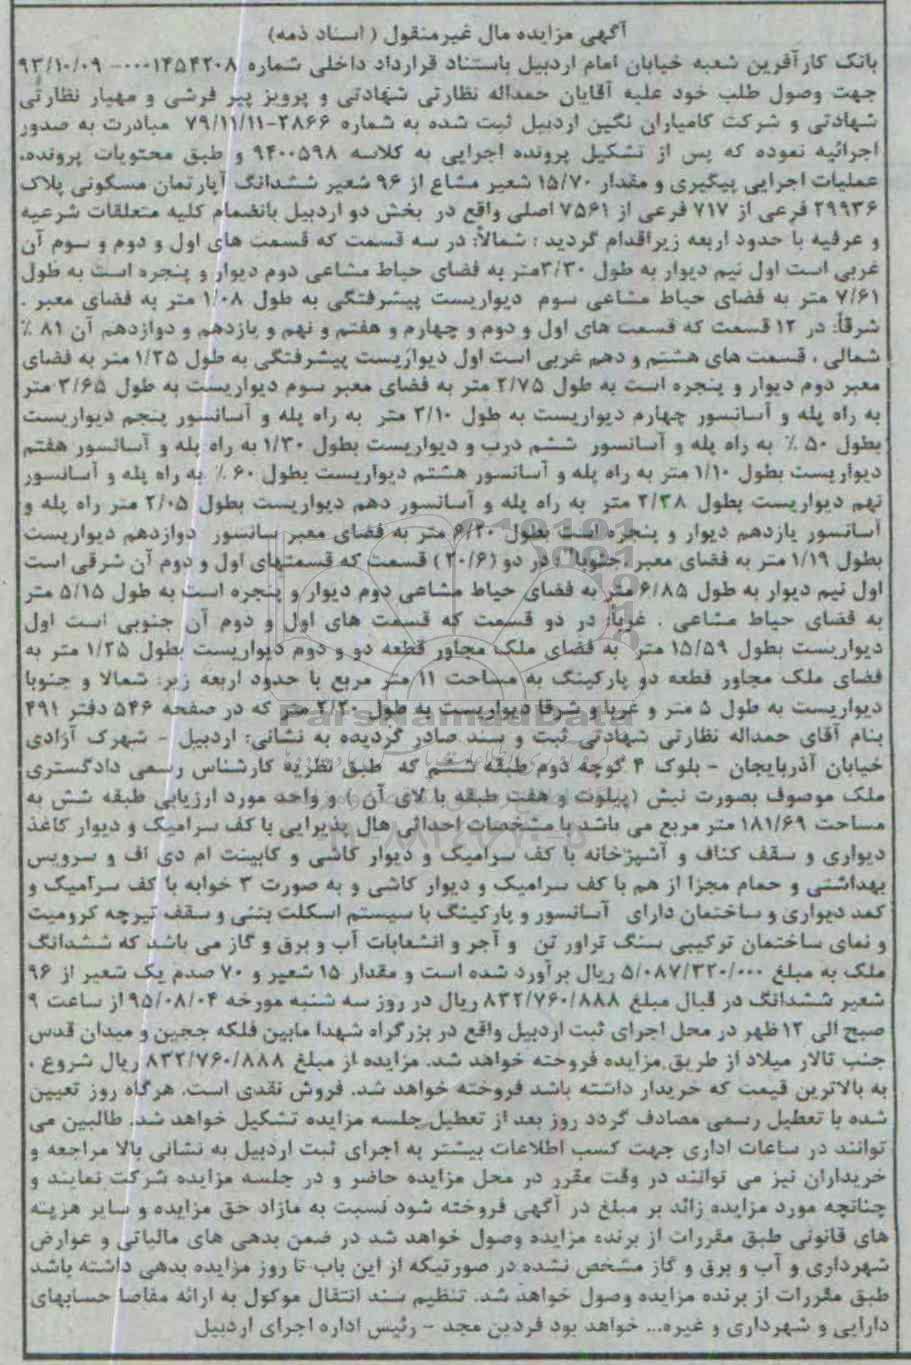 آگهی مزایده مال غیرمنقول ( اسناد ذمه)
بانک کارآفرین شعبه خیابان امام اردبیل باستناد قرارداد داخلی شماره ۱۴۵۴۲۰۸-۰۰۰- ۹۳/۱۰/۰۹
جهت وصول طلب خود علیه آقایان حمداله نظارتی شهادتی و پرویز پیر فرشی و مهیار نظارتی
شهادتی و شرکت کامیاران نگین اردبیل ثبت شده به شماره ۲۸۶۶-۷۹/۱۱/۱۱ مبادرت به صدور
اجرائیه نموده که پس از تشکیل پرونده اجرایی به کلاسه ۹۴۰۰۵۹۸ و طبق محتویات پرونده،
عملیات اجرایی پیگیری و مقدار ۱۵/۷۰ شعیر مشاع از ۹۶ شعیر ششدانگ آپارتمان مسکونی پلاک
۲۹۹۳۶ فرعی از ۷۱۷ فرعی از ۷۵۶۱ اصلی واقع در بخش دو اردبیل بانضمام کلیه متعلقات شرعیه
و عرفیه با حدود اربعه زیراقدام گردید : شمالاً: در سه قسمت که قسمت های اول و دوم و سوم آن
غربی است اول نیم دیوار به طول ۳/۳۰متر به فضای حیاط مشاعی دوم دیوار و پنجره است به طول
۷/۶۱ متر به فضای حیاط مشاعی سوم دیواریست پیشرفتگی به طول ۱/۰۸ متر به فضای معبر .
شرقاً: در ۱۲ قسمت که قسمت های اول و دوم و چهارم و هفتم و نهم و یازدهم و دوازدهم آن ۸۱ ٪
شمالی ، قسمت های هشتم و دهم غربی است اول دیواریست پیشرفتگی به طول ۱/۲۵ متر به فضای
معبر دوم دیوار و پنجره است به طول ۲/۷۵ متر به فضای معبر سوم دیواریست به طول ۳/۶۵ متر
به راه پله و آسانسور چهارم دیواریست به طول ۳/۱۰ متر به راه پله و آسانسور پنجم دیواریست
بطول ۵۰ ٪ به راه پله و آسانسور ششم درب و دیواریست بطول ۱/۳۰ به راه پله و آسانسور هفتم
دیواریست بطول ۱/۱۰ متر به راه پله و آسانسور هشتم دیواریست بطول ۶۰ ٪ به راه پله و آسانسور
نهم دیواریست بطول ۲/۳۸ متر به راه پله و آسانسور دهم دیواریست بطول ۲/۰۵ متر راه پله و
آسانسور یازدهم دیوار و پنجره است بطول ۶/۲۰ متر به فضای معبر سانسور دوازدهم دیواریست
بطول ۱/۱۹ متر به فضای معبر .جنوبا" : در دو (۲۰/۶) قسمت که قسمتهای اول و دوم آن شرقی است
اول نیم دیوار به طول ۶/۸۵ متر به فضای حیاط مشاعی دوم دیوار و پنجره است به طول ۵/۱۵ متر
به فضای حیاط مشاعی . غرباً: در دو قسمت که قسمت های اول و دوم آن جنوبی است اول
دیواریست بطول ۱۵/۵۹ متر به فضای ملک مجاور قطعه دو و دوم دیواریست بطول ۱/۲۵ متر به
فضای ملک مجاور قطعه دو پارکینگ به مساحت ۱۱ متر مربع با حدود اربعه زیر: شمالا و جنوبا
دیواریست به طول ۵ متر و غربا و شرقا دیواریست به طول ۲/۲۰ متر که در صفحه ۵۴۶ دفتر ۴۹۱
بنام آقای حمداله نظارتی شهادتی ثبت و سند صادر گردیده به نشانی: اردبیل - شهرک آزادی
خیابان آذربایجان - بلوک ۴ کوچه دوم طبقه ششم که طبق نظریه کارشناس رسمی دادگستری
ملک موصوف بصورت نبش (پیلوت و هفت طبقه با لای آن ) و واحد مورد ارزیابی طبقه شش به
مساحت ۱۸۱/۶۹ متر مربع می باشد با مشخصات احداثی هال پذیرایی با کف سرامیک و دیوار کاغذ
دیواری و سقف کناف و آشپزخانه با کف سرامیک و دیوار کاشی و کابینت ام دی اف و سرویس
بهداشتی و حمام مجزا از هم با کف سرامیک و دیوار کاشی و به صورت ۳ خوابه با کف سرامیک و
کمد دیواری و ساختمان دارای آسانسور و پارکینگ با سیستم اسکلت بتنی و سقف تیرچه کرومیت
و نمای ساختمان ترکیبی سنگ تراور تن و آجر و انشعابات آب و برق و گاز می باشد که ششدانگ
ملک به مبلغ ۵/۰۸۷/۳۲۰/۰۰۰ ریال برآورد شده است و مقدار ۱۵ شعیر و ۷۰ صدم یک شعیر از ۹۶
شعیر ششدانگ در قبال مبلغ ۸۳۲/۷۶۰/۸۸۸ ریال در روز سه شنبه مورخه ۹۵/۰۸/۰۴ از ساعت ۹
صبح الی ۱۲ ظهر در محل اجرای ثبت اردبیل واقع در بزرگراه شهدا مابین فلکه ججین و میدان قدس
جنب تالار میلاد از طریق مزایده فروخته خواهد شد. مزایده از مبلغ ۸۳۲/۷۶۰/۸۸۸ ریال شروع ،
به بالاترین قیمت که خریدار داشته باشد فروخته خواهد شد. فروش نقدی است. هرگاه روز تعیین
شده با تعطیل رسمی مصادف گردد روز بعد از تعطیل جلسه مزایده تشکیل خواهد شد. طالبین می
توانند در ساعات اداری جهت کسب اطلاعات بیشتر به اجرای ثبت اردبیل به نشانی بالا مراجعه و
خریداران نیز می توانند در وقت مقرر در محل مزایده حاضر و در جلسه مزایده شرکت نمایند و
چنانچه مورد مزایده زائد بر مبلغ در آگهی فروخته شود نسبت به مازاد حق مزایده و سایر هزینه
های قانونی طبق مقررات از برنده مزایده وصول خواهد شد در ضمن بدهی های مالیاتی و عوارض
شهرداری و آب و برق و گاز مشخص نشده در صورتیکه از این باب تا روز مزایده بدهی داشته باشد
طبق مقررات از برنده مزایده وصول خواهد شد. تنظیم سند انتقال موکول به ارائه مفاصا حسابهای
دارایی و شهرداری و غیره... خواهد بود فردین مجد - رئیس اداره اجرای اردبیل
ParsNamadData